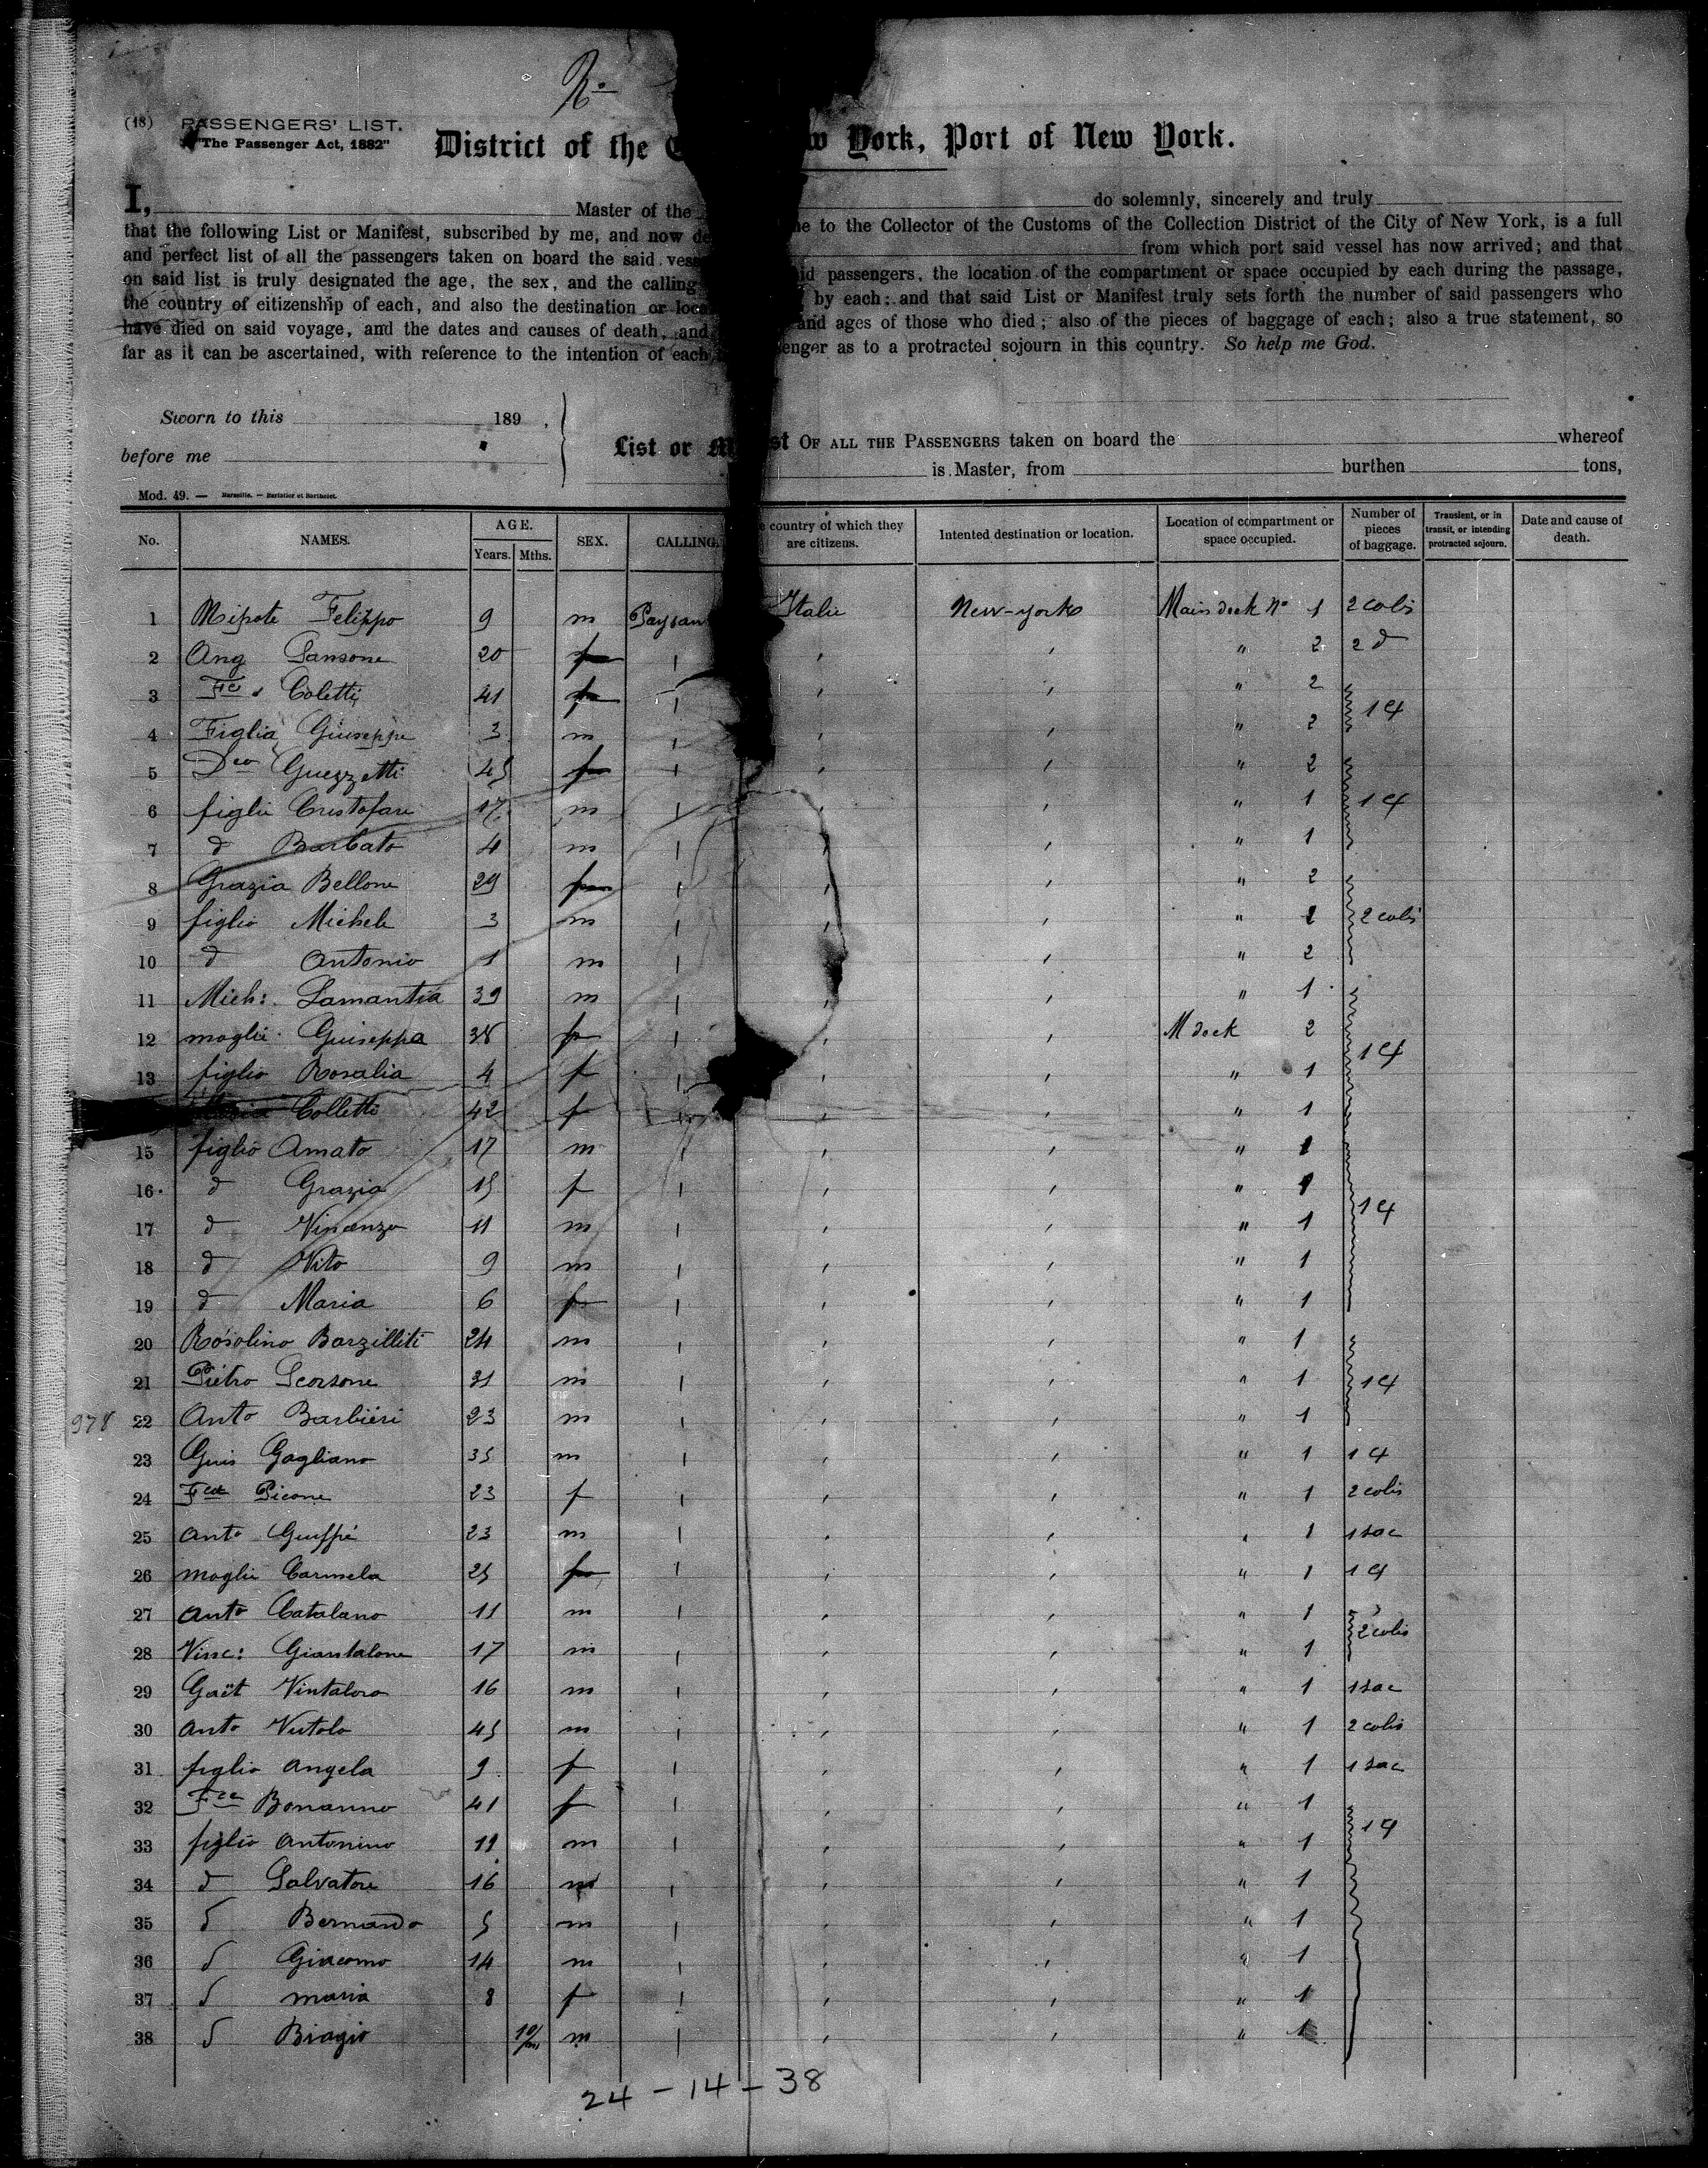 N°
(18) PASSENGERS' LIST.
"The Passenger Act, 1882"
District of the C w York, Port of New York.
I, Master of the do solemnly, sincerely and truly
that the following List or Manifest, subscribed by me, and now de ne to the Collector of the Customs of the Collection District of the City of New York, is a full
and perfect list of all the passengers taken on board the said vess from which port said vessel has now arrived; and that
on said list is truly designated the age, the sex, and the calling id passengers, the location of the compartment or space occupied by each during the passage,
the country of citizenship of each, and also the destination or loca by each; and that said List or Manifest truly sets forth the number of said passengers who
have died on said voyage, and the dates and causes of death, and and ages of those who died; also of the pieces of baggage of each; also a true statement, so
far as it can be ascertained, with reference to the intention of each enger as to a protracted sojourn in this country. So help me God.
Sworn to this 189 ,
before me
List or M st OF ALL THE PASSENGERS taken on board the whereof
is Master, from burthen tons,
Mod. 49. — Marseille. — Barlatier et Barthelet.
No. NAMES. AGE. Years. Mths. SEX. CALLING. e country of which they are citizens. Intented destination or location. Location of compartment or space occupied. Number of pieces of baggage. Transient, or in transit, or intending protracted sojourn. Date and cause of death.
1 Felippo 9 m Paysan Italie New-york Main deck N° 1 2 colis
2 Ang Sansone 20 f " 2 2 d
3 Fca Coletti 41 f " 2
4 Figlia Giuseppe 3 m " 2 14
5 Dco Guezzetti 45 f " 2
6 figlii Cristofaro 17 m " 1 14
7 d Barbato 4 m " 1
8 Grazia Bellone 29 f " 2
9 figlio Michele 3 m " 2 2 colis
10 d Antonio 1 m " 2
11 Mich: Lamantia 39 m " 1
12 moglie Guiseppa 38 f M deck 2
13 figlio Rosalia 4 f " 1 14
Colletti 42 f " 1
15 figlio Amato 17 m " 1
16 d Grazia 15 f " 1
17 d Vincenzo 11 m " 1 14
18 d Vito 9 m " 1
19 d Maria 6 f " 1
20 Rosolino Barzilliti 24 m " 1
21 Pietro Scorsone 31 m " 1 14
978 22 Anto Barbieri 23 m " 1
23 Guis Gagliano 35 m " 1 14
24 Fca Picone 23 f " 1 2 colis
25 Anto Guiffré 23 m " 1 1 sac
26 moglie Carmela 25 f " 1 14
27 Anto Catalano 11 m " 1
28 Vinc: Giantalone 17 m " 1 2 colis
29 Gaët Vintaloro 16 m " 1 1 sac
30 Anto Vutolo 45 m " 1 2 colis
31 figlio Angela 9 f " 1 1 sac
32 Fca Bonanno 41 f " 1
33 figlio Antonino 19 m " 1 14
34 d Salvatore 16 m " 1
35 d Bernardo 5 m " 1
36 d Giacomo 14 m " 1
37 d Maria 8 f " 1
38 d Biagio 10/m m " 1
24 - 14 - 38